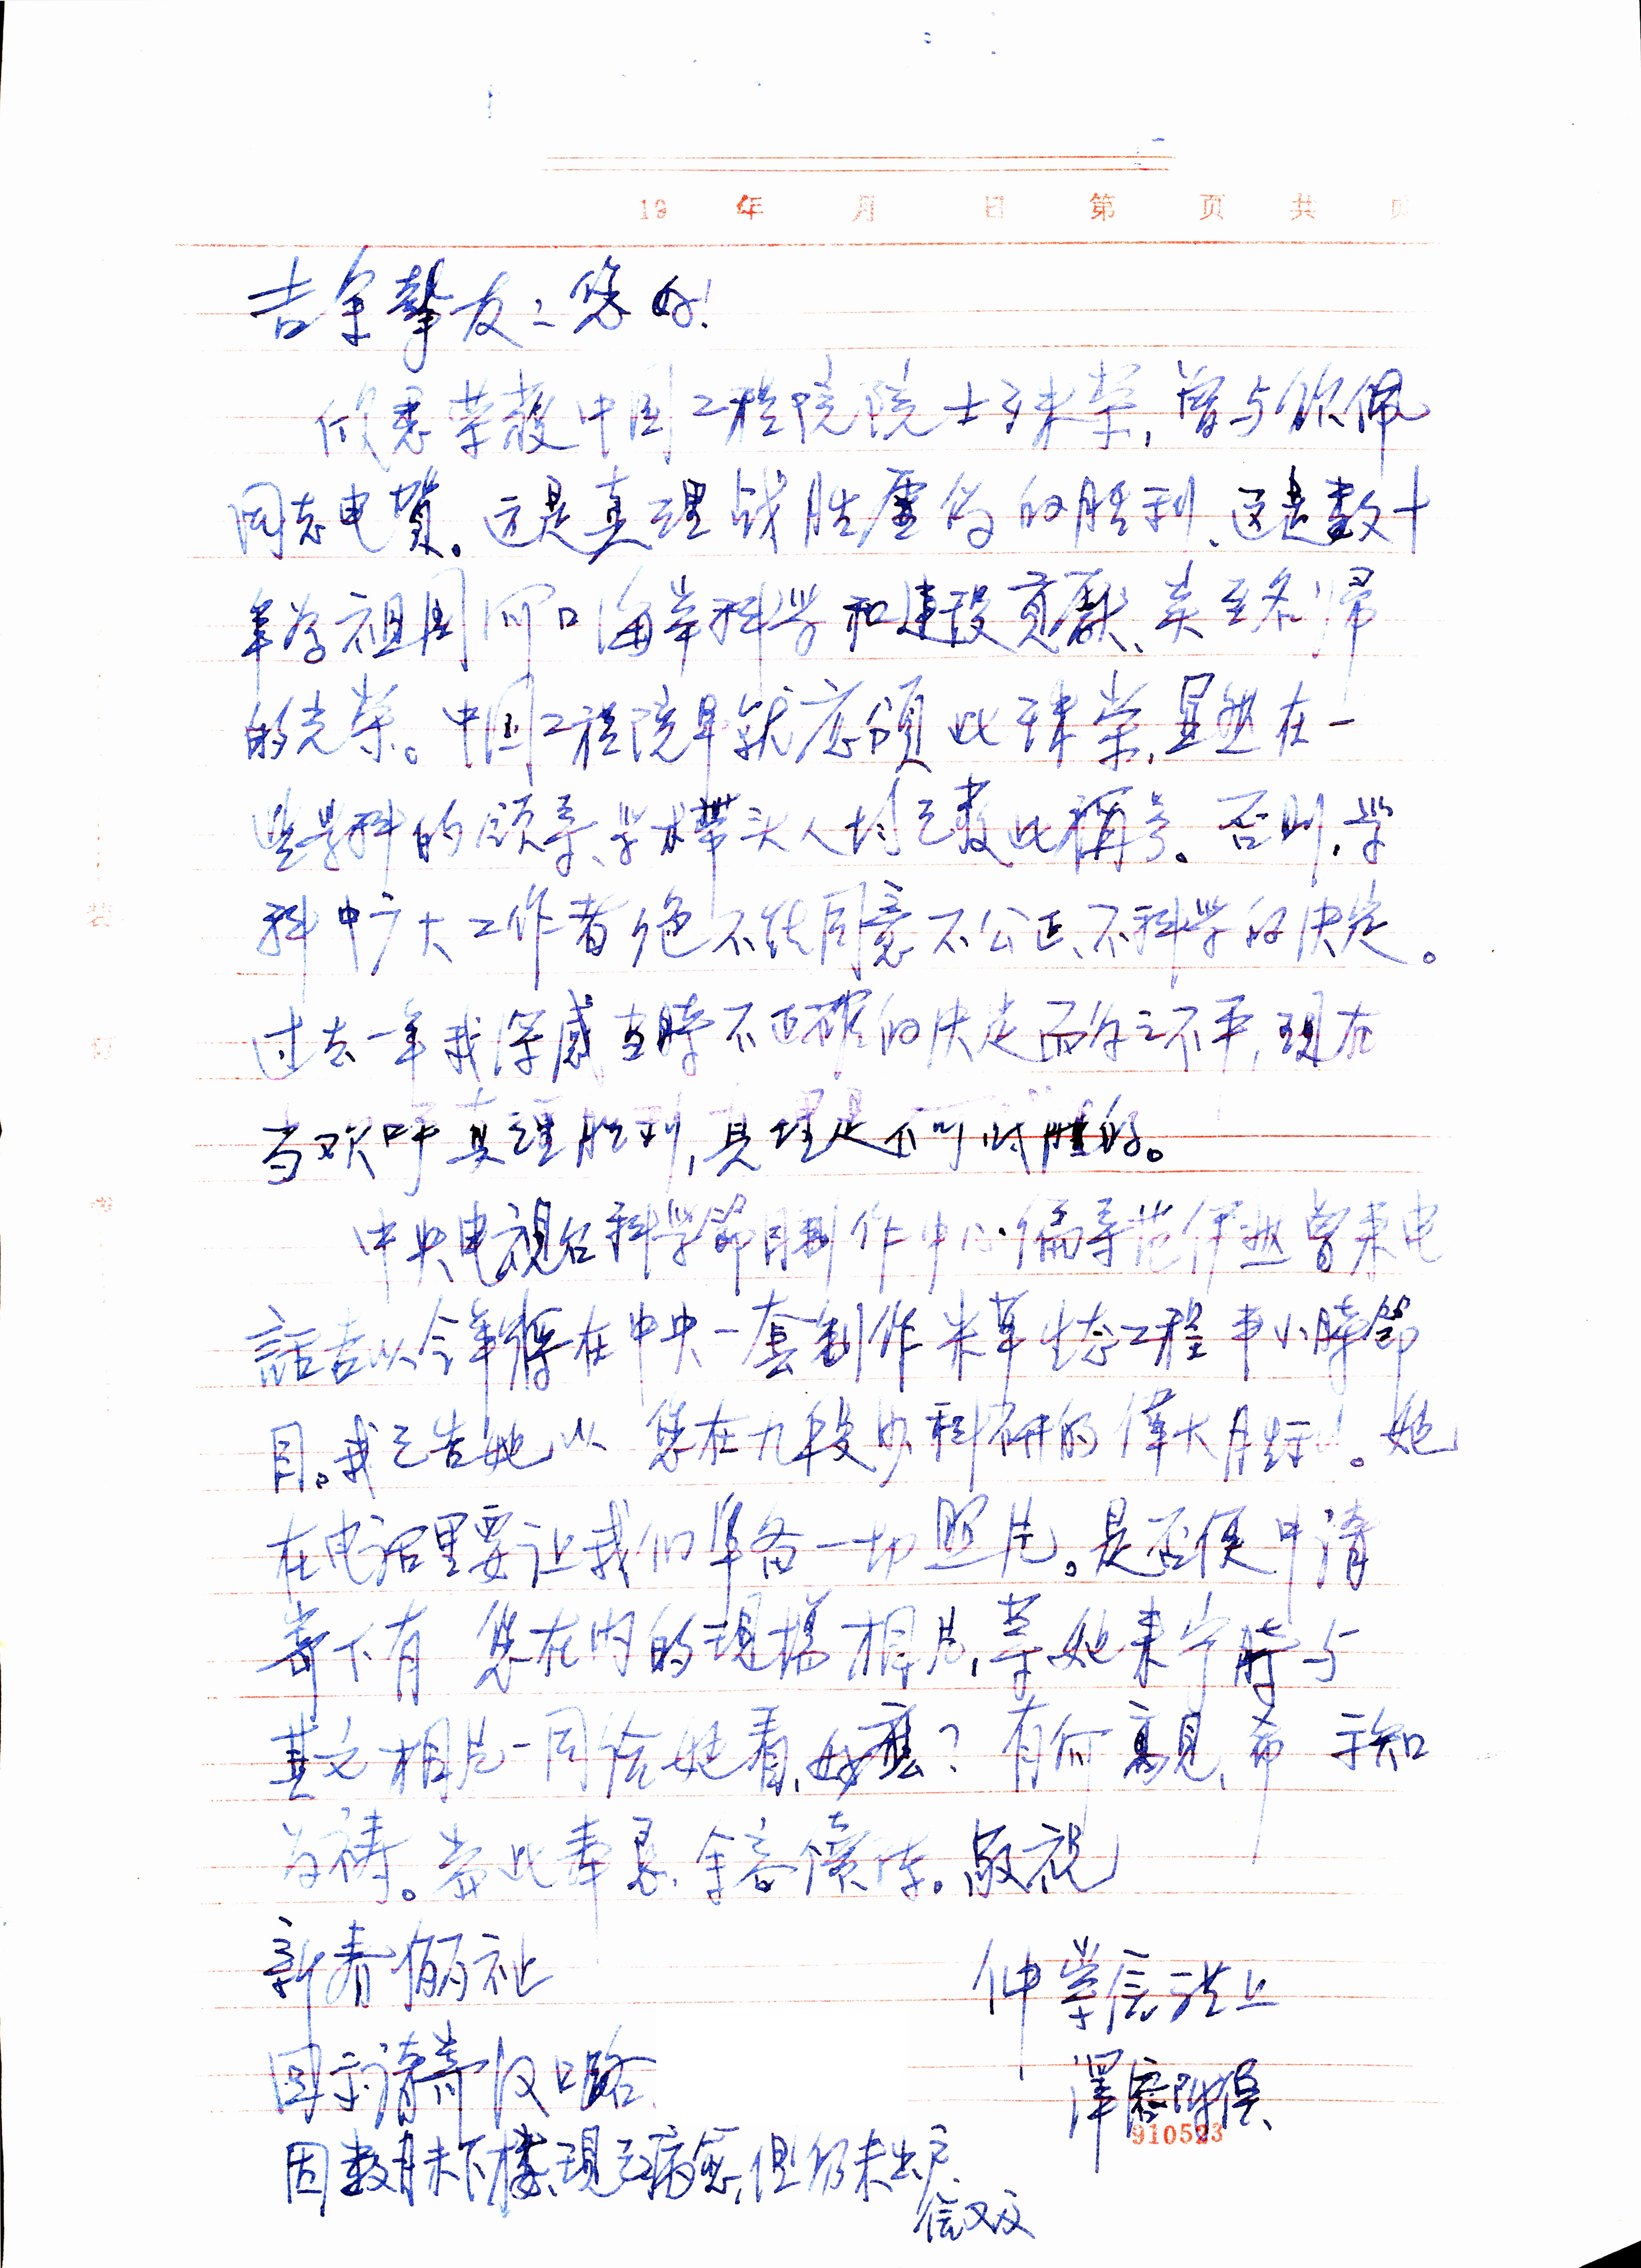 19 年 月 日 第 页 共 页
吉余摯友：您好！
欣悉荣获中国工程院院士殊荣，曾与佩
同志电贺。这是真理战胜虚伪的胜利、这是数十
年为祖国河口海岸科学和建设贡献、实至名归
的光荣。中国工程院早就应颁此殊荣，显然在一
些学科的领导、学术带头人均已获此稱号。否则，学
科中广大工作者绝不能同意不公正、不科学的决定。
过去一年我深感当時不正確的决定而为之不平，现在
当欢呼真理胜利，真理是不可战胜的。
中央电视台科学節目制作中心編导范伊然曾来电
話告以今年将在中央一套制作米草生态工程半小時節
目。我已告她以 您在九段沙科研的偉大胜利。她
在电话里要让我们准备一切照片。是否便中请
寄下有 您在内的现場相片，等她来宁時与
其它相片一同给她看，好麽？有何高见，希 示知
为祷。耑此奉恳，余容續陈。敬祝
新春俪祉
仲崇信 上
回示请寄汉口路
澤 附候
910523
因数月未下楼，现已病愈，但仍未出户。
信又及
装
订
线